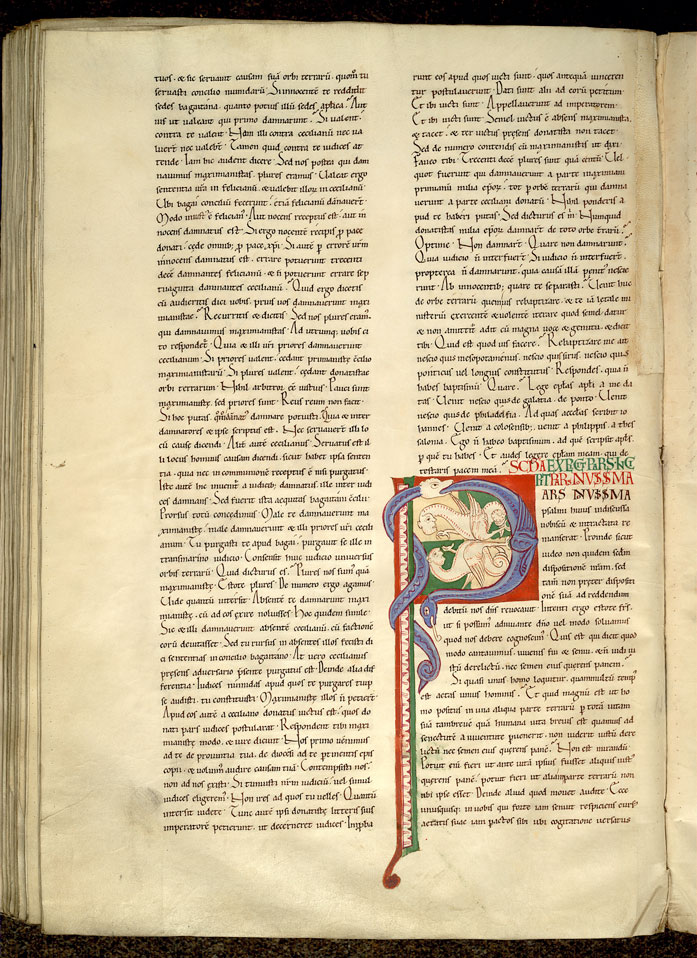 tuos · & sic seruauit causam suā orbi terrarū · quom̄ tu
seruasti concilio numidarū · Si innocentē te reddidit
sedes bagaitana · quanto potius illū sedes aplica · Aut
nis ut ualeant qui primo damnarunt · Si ualent ·
contra te ualent · Nam illi contra cecilianū nec ua
luer̄ nec ualebr̄t · Tamen quid contra te iudices at
tende · Iam hic audent dicere · Sed nos postea qui dam
nauimus maximianistas · plures eramus · Valeat ergo
sententia ur̄a in felicianū · & ualebit illor in cecilianū
Vbi bagai conciliū fecerunt · etiā felicianū dānauer̄t ·
Modo intus ē felician · Aut nocens receptus est · aut in
nocens damnatus est · Si ergo nocentē recipis p̄ pace
donati · cęde omnib; p̄ pace xp̄i · Si autē p̄ errorē ur̄m
innocens damnatus est · errare potuerunt trecenti
decē damnantes felicianū · & n̄ potuerunt errare sep
tuaginta damnantes cecilianū · Quid ergo dicetis
cū audieritis dici uobis prius uos damnauerunt maxi
mianistae · Recurritis & dicitis · Sed nos plures eram̄ ·
qui damnauimus maximianistas · Ad utrumq; uobis ci
to respondet̄ · Quia & illi ur̄i priores damnauerunt
cecilianum · Si priores ualent · cędant primianistę cōcilio
maximianistarū · Si plures ualent · cędant donatistae
orbi terrarum · Nihil arbitror eē iustius · Pauci sunt
maximianistę · sed priores sunt · Reus reum non facit ·
Si hoc putas · damnare potuisti · Quia & inter
damnatores & ipse scriptus est · Nec seruauer̄t illi lo
cū causę dicendi · Aut autē cecilianus · Seruatus est il
li locus hominis causam dicendi · sicut habet ipsa senten
tia · quia nec in communione receptus ē nisi purgatus ·
Iste autē hic inuenit̄ a iudicib; damnatus · ille inter iudi
ces damnans · Sed fuerit ista aequitas bagaitani cōcilii ·
Prorsus totū concedimus · Male te damnauerunt ma
ximianistę · male damnauerunt & illi priores ur̄i cecili
anum · Tu purgasti te apud bagai · purgauit se ille in
transmarino iudicio · Consensit huic iudicio uniuersus
orbis terrarū · Quid dicturus es · Plures nos sum̄ quā
maximianistę · Estote plures · De numero ergo agamus
Vide quantū intersit · Absentē te damnarunt maxi
mianistę · cū ad eos exire noluisses · Hoc quidem simile ·
Sic & illi damnauerunt absentē cecilianū · cū factionē
corū deuitasset · Sed tu rursus in absentes illos fecisti di
ci sententias in concilio bagaitano · At uero cecilianus
pręsens aduersario pr̄sente purgatus est · Deinde alia dif
ferentia · Iudices numidas apud quos te purgares tuip
se audisti · tu constituisti · Maximianistę illos n̄ petier̄t ·
Apud eos autē a ceciliano donatus uictus est · quos do
nati pars iudices postularat · Respondent tibi maxi
mianistę modo · & uere dicunt · Nos primo uenimus
ad te de prouintia tua · de diocesi ad te p̄tinentis epis
copi · & uoluim̄ audire causam tuā · Contempsisti nos ·
non ad nos existi · Si timuisti nr̄m iudiciū · uel simul
iudices eligerem̄ · Non ires ad quos tu uelles · Quantū
intersit uidete · Tunc autē ipsi donatistę litteris suis
imperatorē petierunt · ut decerneret iudices · In p̄ba
runt eos apud quos uicti sunt · quos antequā uinceren
tur postulauerunt · Dati sunt alii ad eorū petitum ·
Et ibi uicti sunt · Appellauerunt ad imperatorem ·
Et ibi uicti sunt · Semel uictus ē absens maximianista
& tacet · & ter uictus pręsens donatista non tacet ·
Sed de numero contendis cū maximianistis ut dixi ·
Pauco tibi · Trecenti decē plures sunt quā centū · Vel
quot fuerunt qui damnauerunt a parte maximiani
primianū · milia ep̄orz · tot p̄ orbē terrarū qui damna
uerunt a parte ceciliani donatū · Nihil ponderis a
pud te haberi putas · Sed dicturus es m̄ · Numquid
donatistas milia ep̄orz damnar̄t de toto orbe trarū ·
Optime · Non damnar̄t · Quare non damnarunt ·
Quia iudicio n̄ interfuer̄t · Si iudicio n̄ interfuer̄t ·
propterea n̄ damnarunt · quia causā illā penit' nescie
runt · Ab innocentib; quare te separasti · Venit huc
de orbe terrarū quem uis rebaptizare · & te ia letale mi
nisteriū exercentē & uolentē iterare quod semel datur
& non amittit̄ · adit cū magna uoce & gemitu · & dicit
tibi · Quid est quod uis facere · Rebaptizare me ait
nescio quis mesopotamenus · nescio quis sirus · nescio quis
ponticus · uel longius constitutus · Respondes · quia n̄
habes baptismū · Quare · Lege ep̄las apl̄i a me da
tas · Venit nescio quis de galatia · de ponto · Venit
nescio quis de philadelfia · Ad quas aecclas scribit io
hannes · Venit a colosensib; uenit a philippis · a thes
salonia · Ego n̄ habeo baptismum · ad quē scripsit apl̄s ·
p̄ quē tu habes · Et audes legere ep̄lam meam · qui de
testaris pacem mea ·
SCDA EXPLC PARS · INC
RT PARS NVSSMA
ARS NVSSMA
psalmi huius indiscussa
uobiscū & intractata re
manserat · Proinde sicut
uideo non quidem sedm̄
dispositionē mām · sed
tam̄ non preter dispositi
onē suā ad reddendum
debitū nos dn̄s reuocauit · Intenti ergo estote fr̄s ·
ut si possim̄ adiuuante dn̄o uel modo soluamus
quod nos debere cognoscim̄ · Quis est qui dicit quod
modo cantauimus · iuuenis fui & senui · & n̄ uidi iu
stū derelictū · nec semen eius querens panem ·
Si quasi unus homo loquitur · quammultū temp'
est aetas unius hominis · Et quid magnū est ut ho
mo positus in una aliqua parte terrarū p̄ totā uitam
suā tambreuē quā humana uita breuis est quamuis ad
senectutē a iuuentute puenerit · non uiderit iustū dere
lictū nec semen eius querens panē · Non est mirandū ·
Potuit eni fieri ut ante uitā ipsius fuisset aliquis iust'
querens panē · potuit fieri ut alia inparte terrarū non
ubi ipse esset · Deinde aliud quod mouet audite · Ecce
unusquisq; in uobis qui forte iam senuit respiciens curs'
aetatis suae iam p̄actos sibi ubi cogitatione uersatus